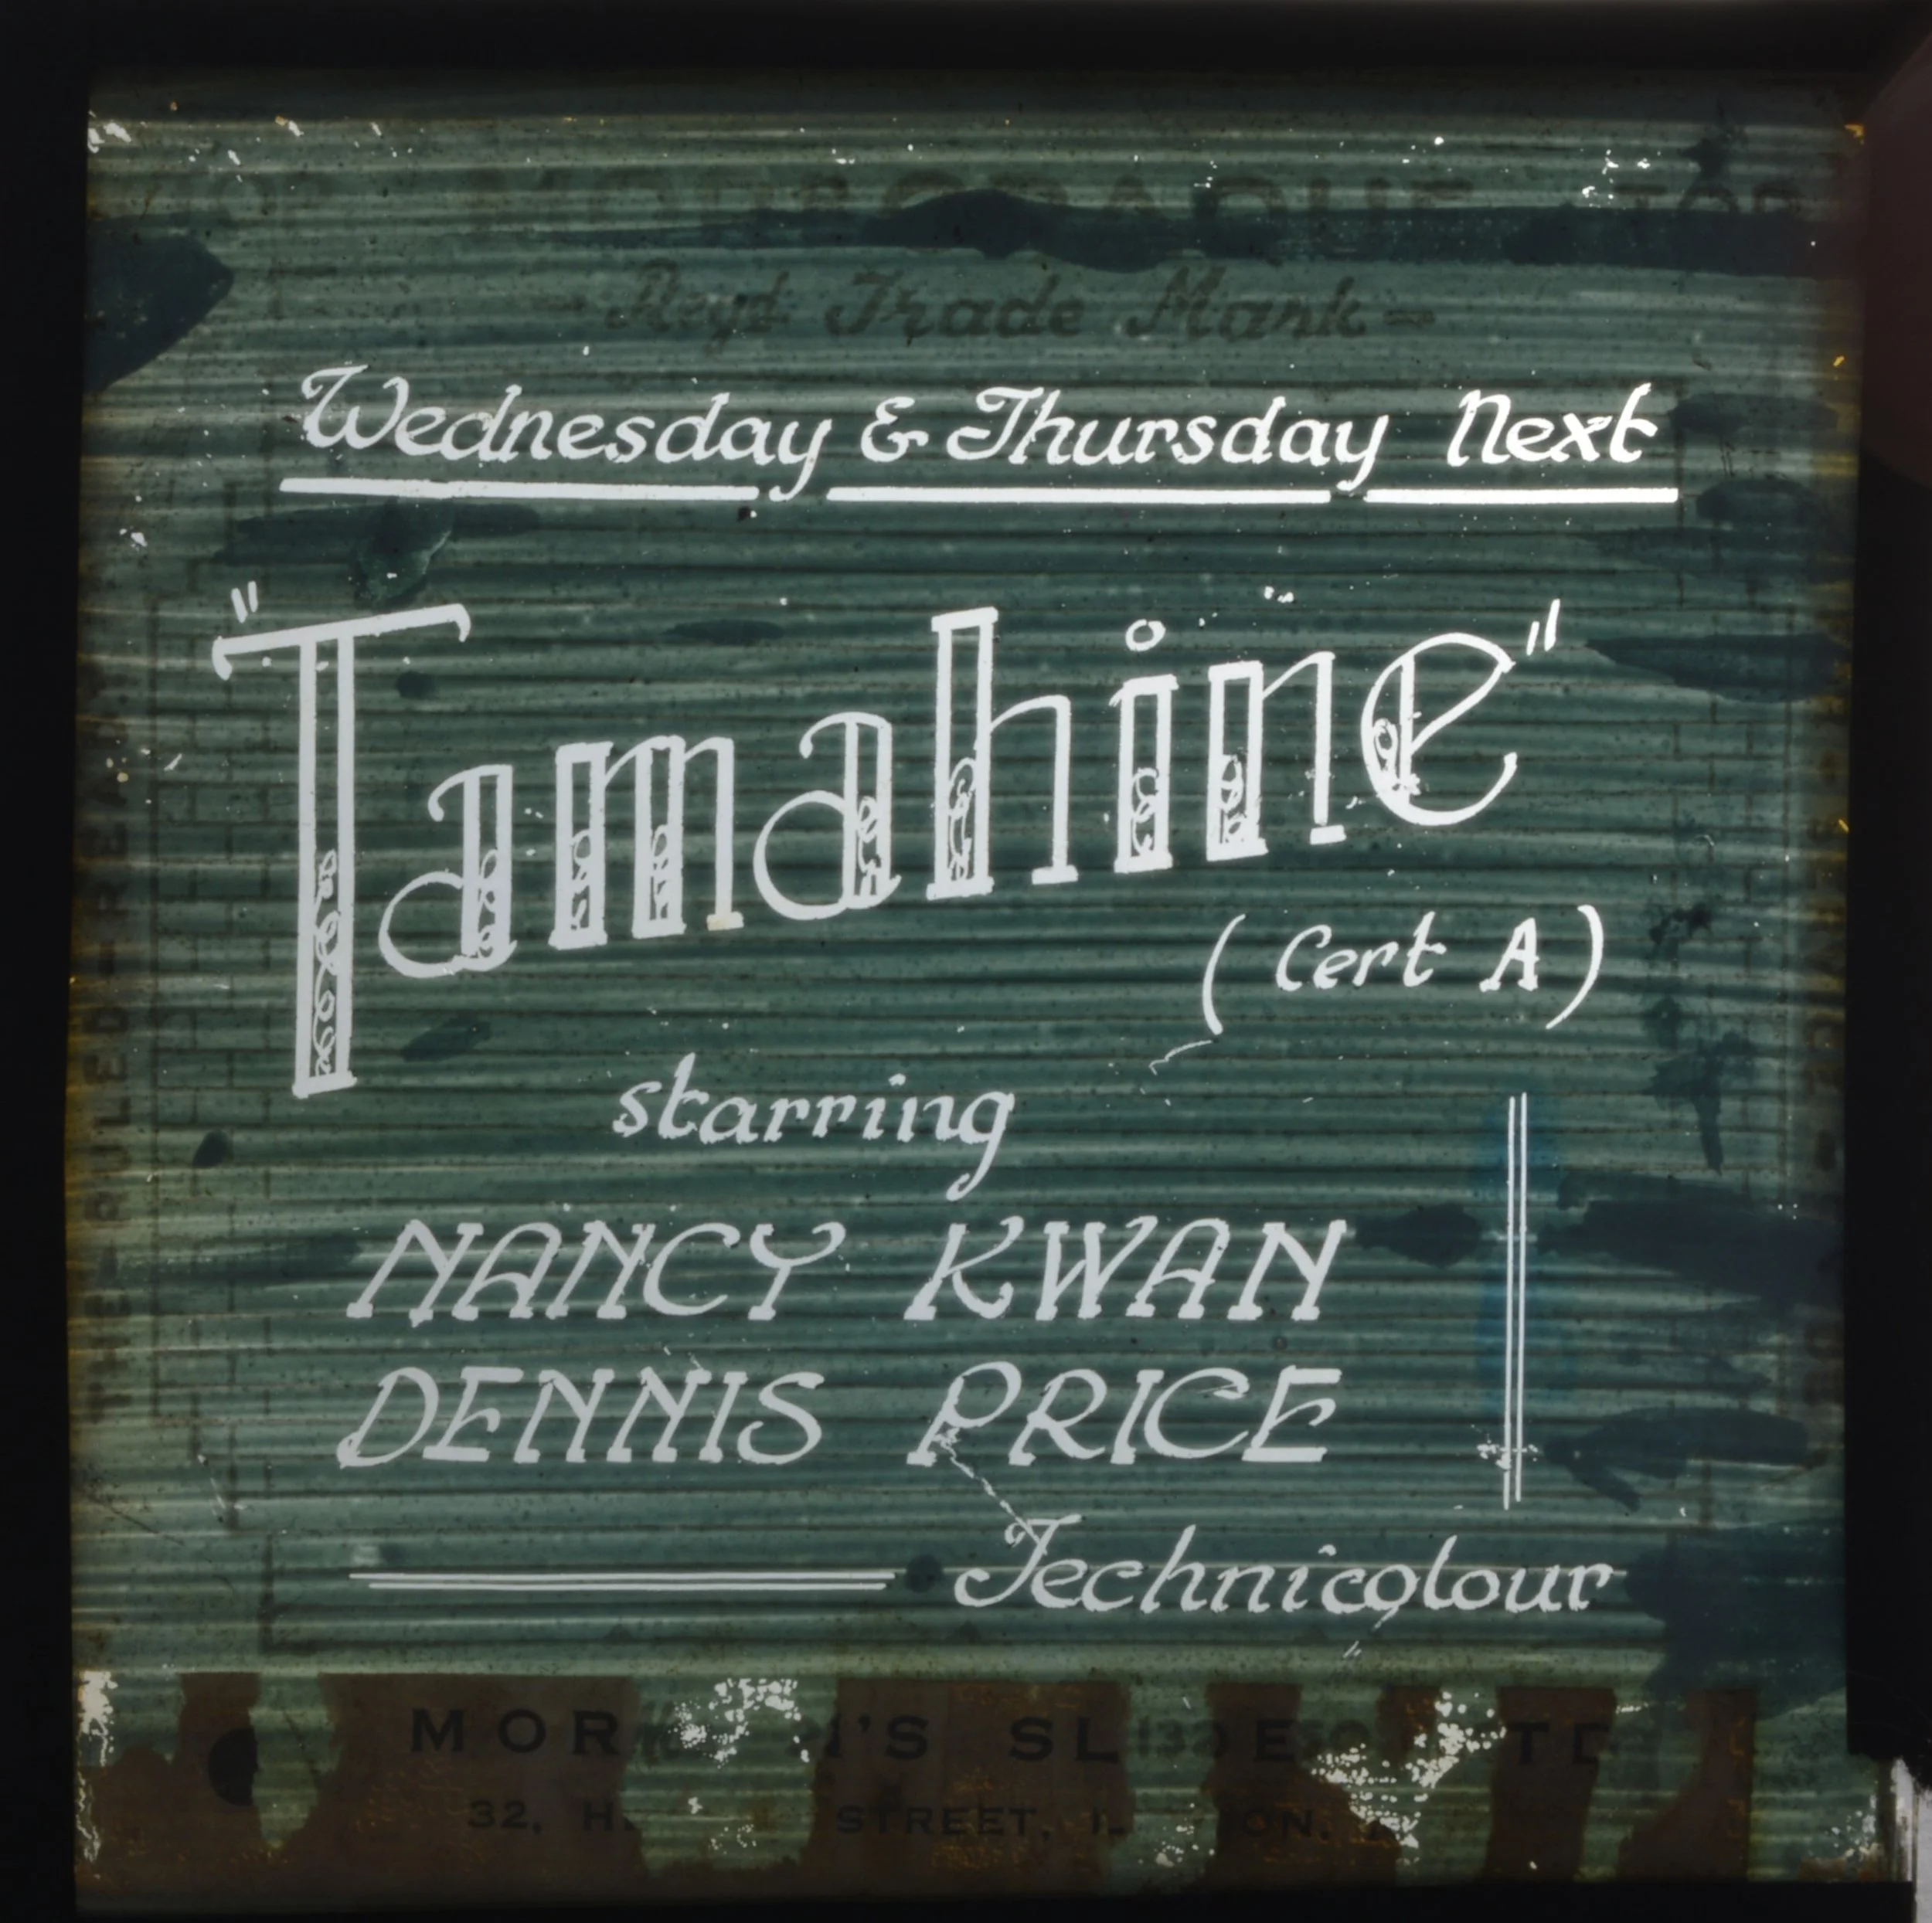 - Regd Trade Mark -
Wednesday & Thursday Next
"Tamahine"
(Cert A)
starring
NANCY KWAN
DENNIS PRICE
Technicolour
32, STREET,